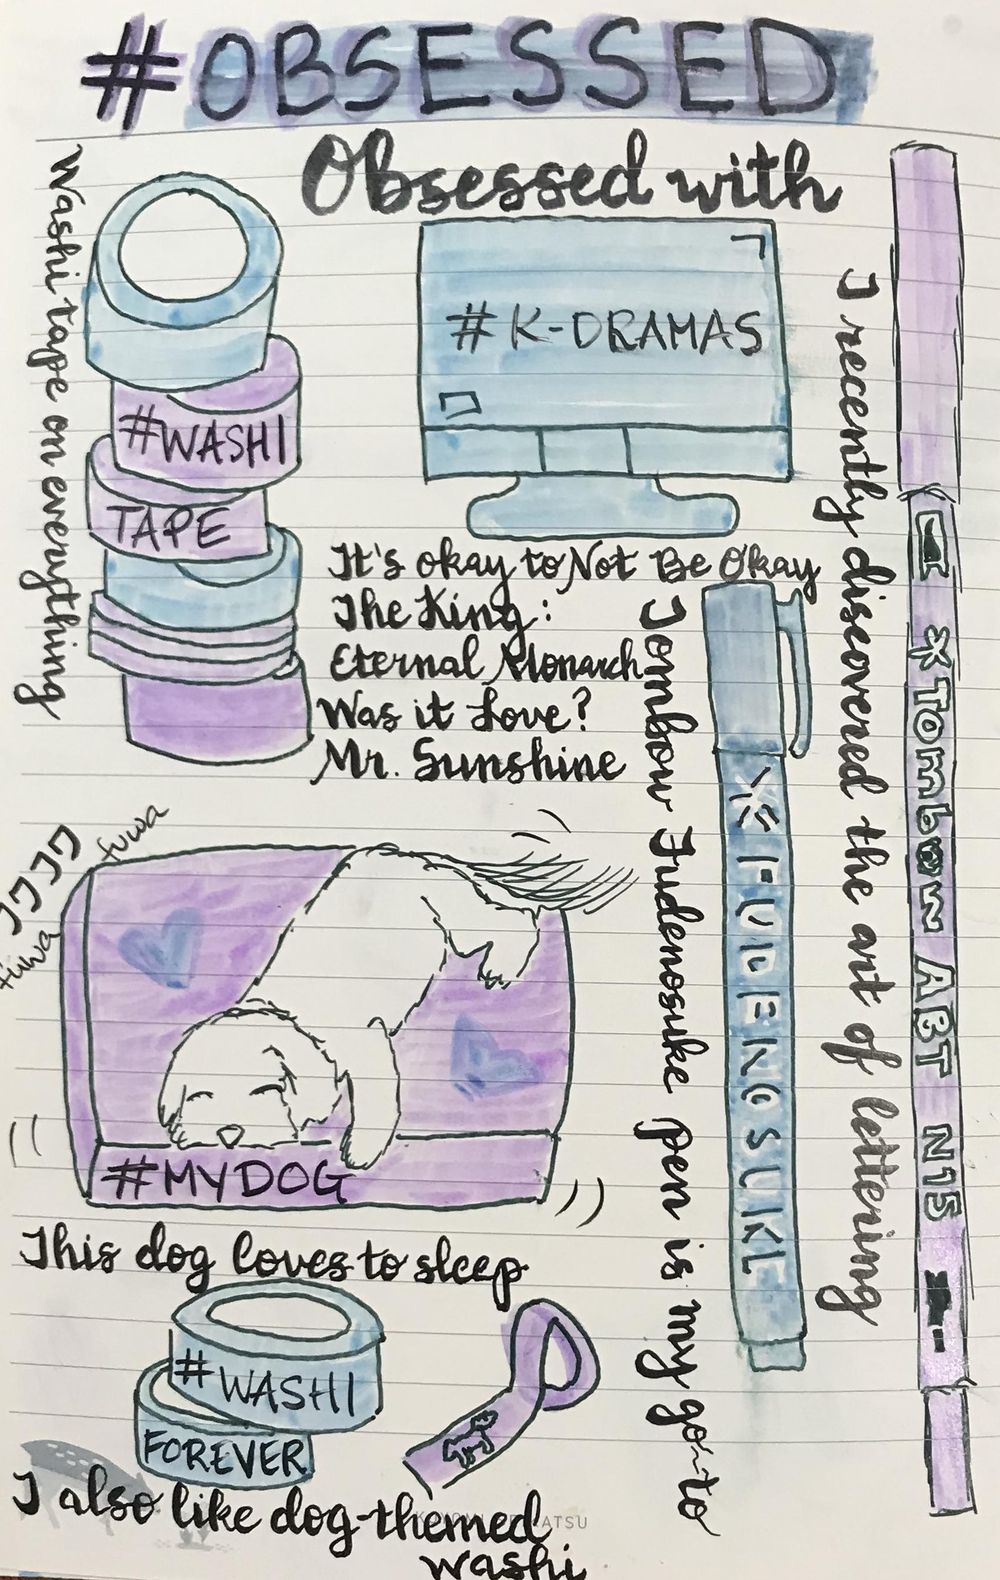 #OBSESSED
Obsessed with
Washi tape on everything
#WASHI
TAPE
#K-DRAMAS
It's okay to Not Be Okay
The King:
Eternal Monarch
Was it Love?
Mr. Sunshine
I recently discovered the art of lettering
Tombow ABT N15
Tombow Fudenosuke pen is my go-to
FUDENOSUKE
fuwa
fuwa
#MYDOG
This dog loves to sleep
#WASHI
FOREVER
I also like dog-themed
washi